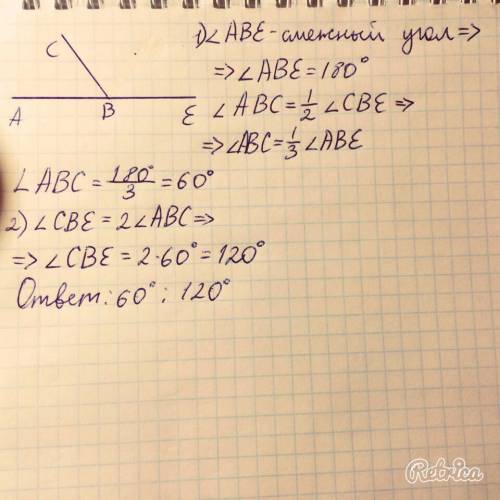 1) ∠ABE - смежный угол =>
=> ∠ABE = 180°
∠ABC = 1/2 ∠CBE =>
=> ∠ABC = 1/3 ∠ABE
C
A B E
∠ABC = 180°/3 = 60°
2) ∠CBE = 2∠ABC =>
=> ∠CBE = 2·60° = 120°
Ответ: 60°; 120°
Retrica